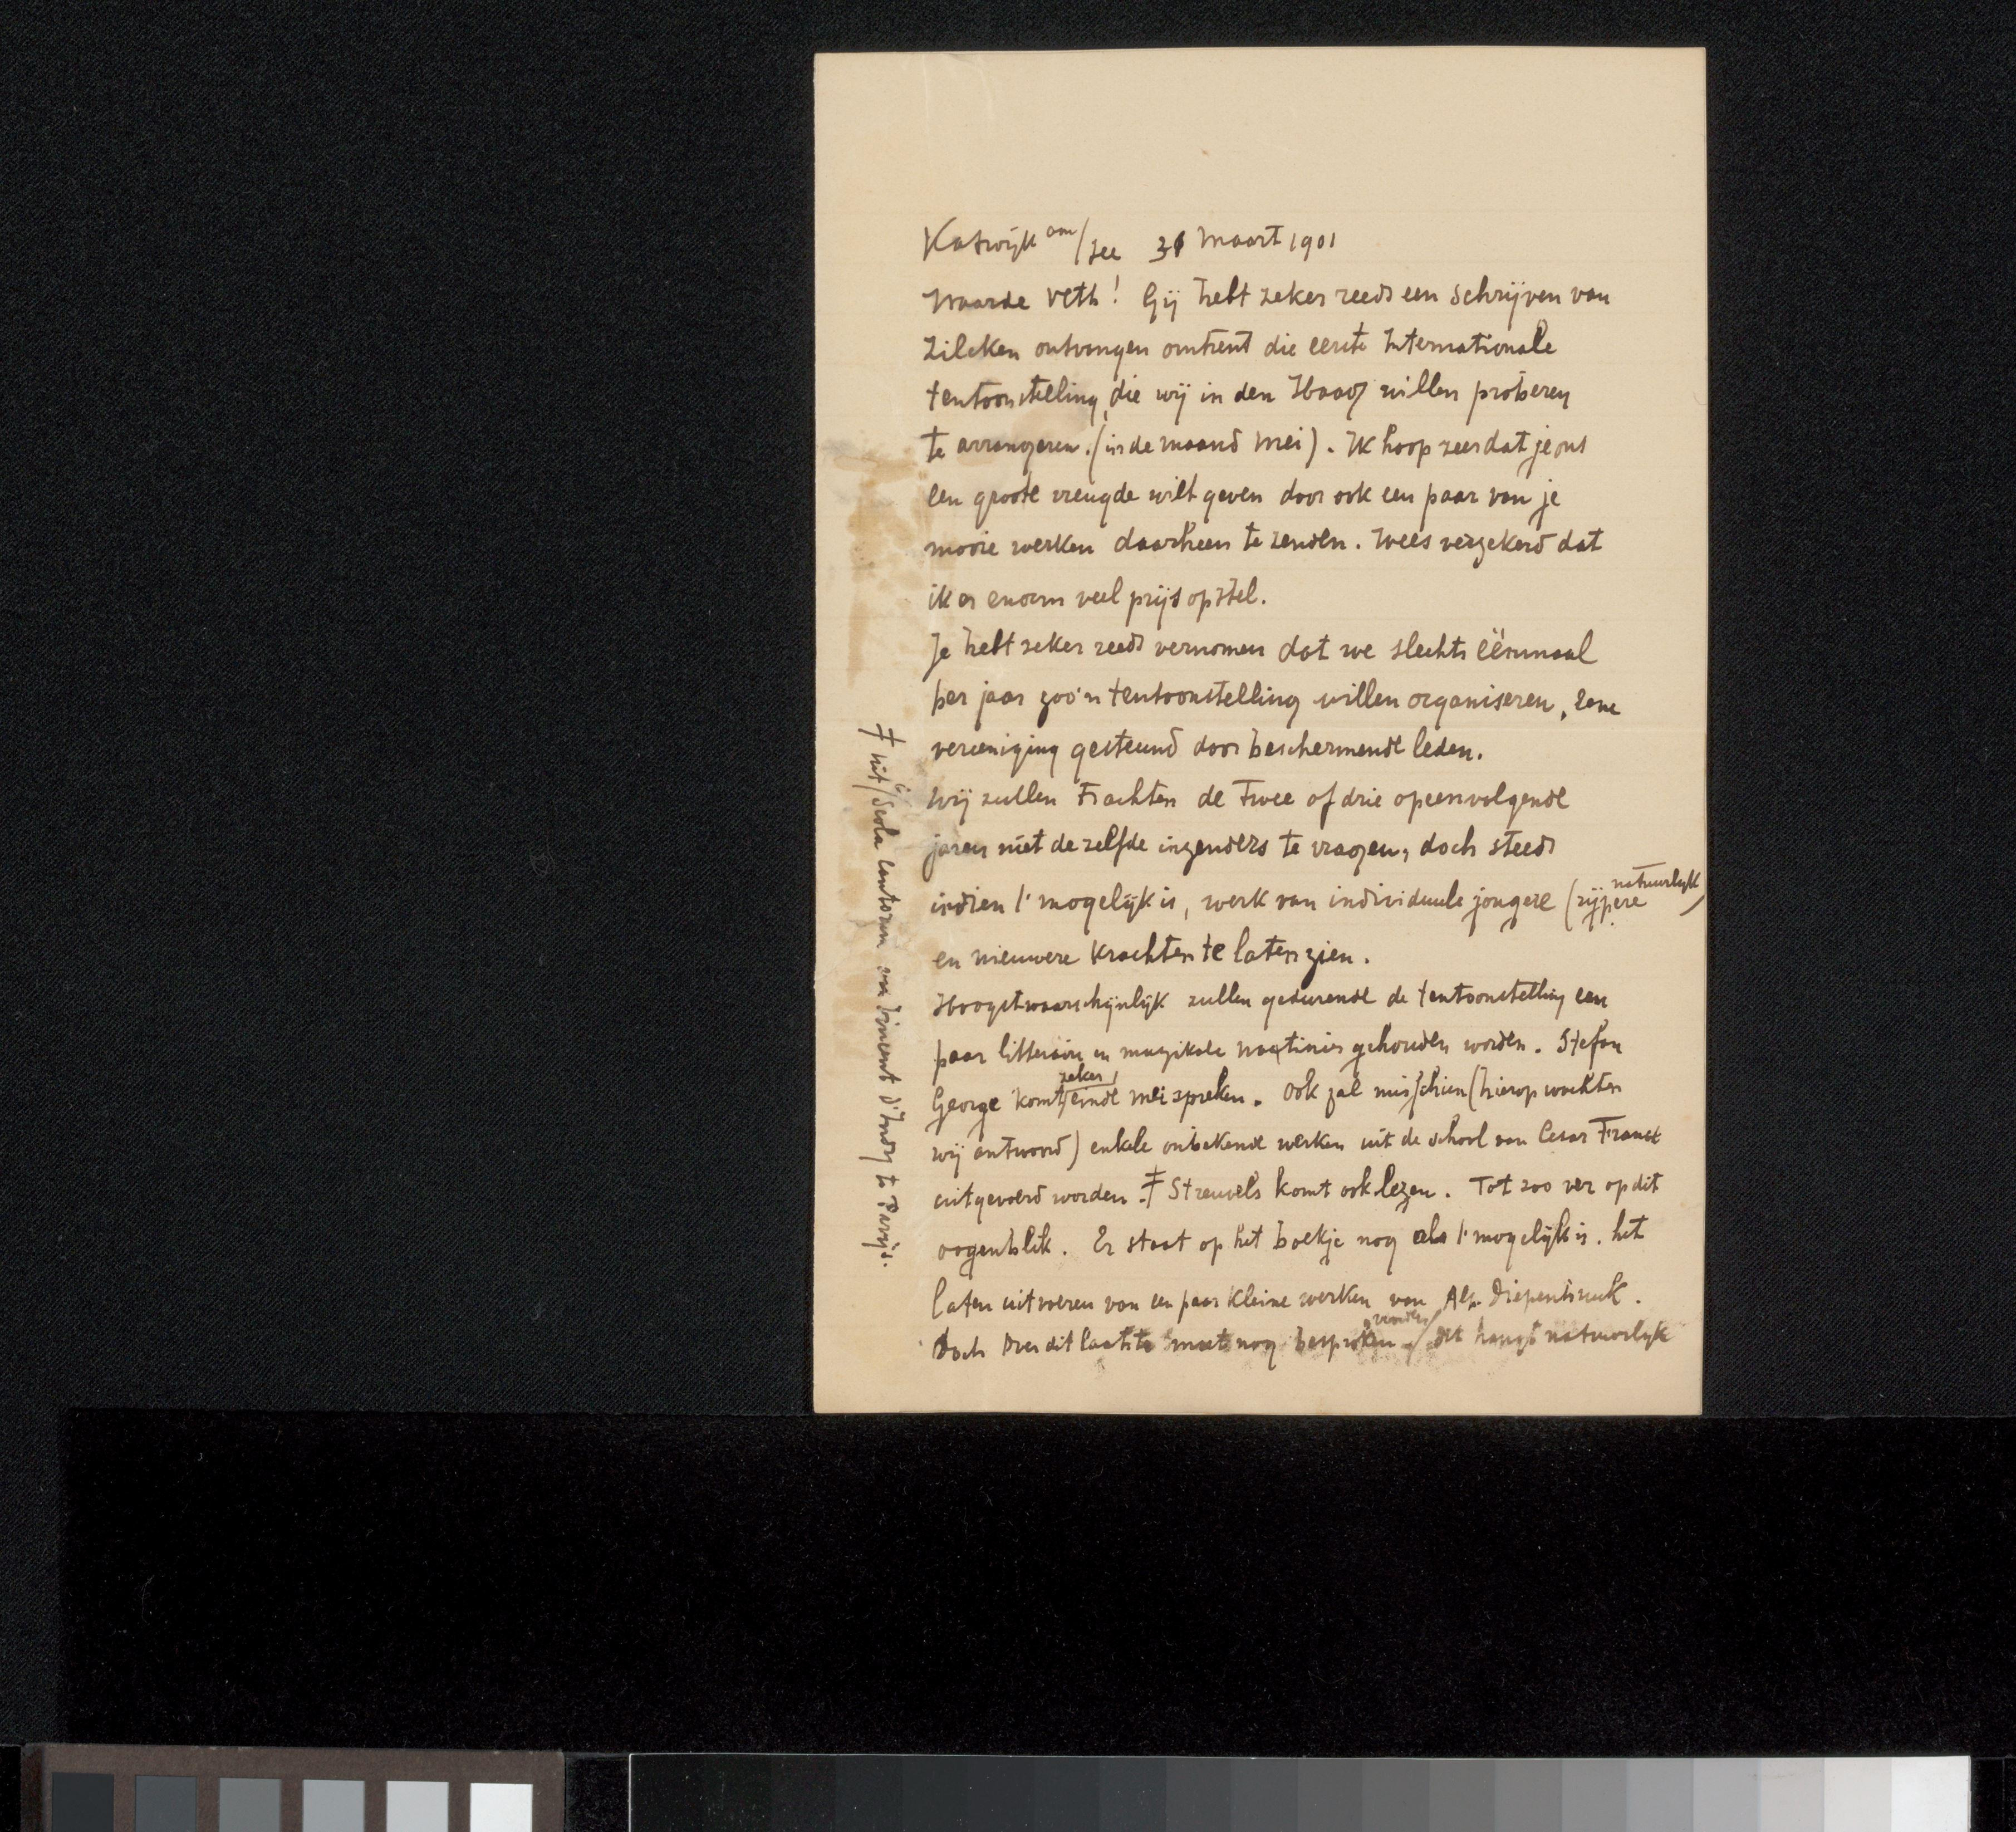 Katwijk aan/zee 31 Maart 1901
Waarde Veth! Gij hebt zeker reeds een schrijven van
Zilcken ontvangen omtrent die eerste Internationale
tentoonstelling, die wij in den Haag willen proberen
te arrangeren. (in de maand Mei). Ik hoop zeer dat je ons
een groote vreugde wilt geven door ook een paar van je
mooie werken daarheen te zenden. Wees verzekerd dat
ik er enorm veel prijs op stel.
Je hebt zeker reeds vernomen dat we slechts éénmaal
per jaar zoo'n tentoonstelling willen organiseren, eene
vereeniging gesteund door beschermende leden.
Wij zullen trachten de twee of drie opeenvolgende
jaren niet dezelfde inzenders te vragen, doch steeds
indien 't mogelijk is, werk van individuele jongere (rijpere natuurlijk)
en nieuwere krachten te laten zien.
Hoogstwaarschijnlijk zullen gedurende de tentoonstelling een
paar litteraire en muzikale matinées gehouden worden. Stefan
George komt zeker einde Mei spreken. Ook zal misschien (hierop wachten
wij antwoord) enkele onbekende werken uit de school van Cesar Franck
uitgevoerd worden. ‡ Streuvels komt ook lezen. Tot zoo ver op dit
oogenblik. Er staat op het boekje nog als 't mogelijk is. het
laten uitvoeren van een paar kleine werken van Alp. Diepenbrock.
Doch over dit laatste moet nog besproken worden / dit hangt natuurlijk
‡ uit / Scola Cantorum van Vincent d'Indy te Parijs.